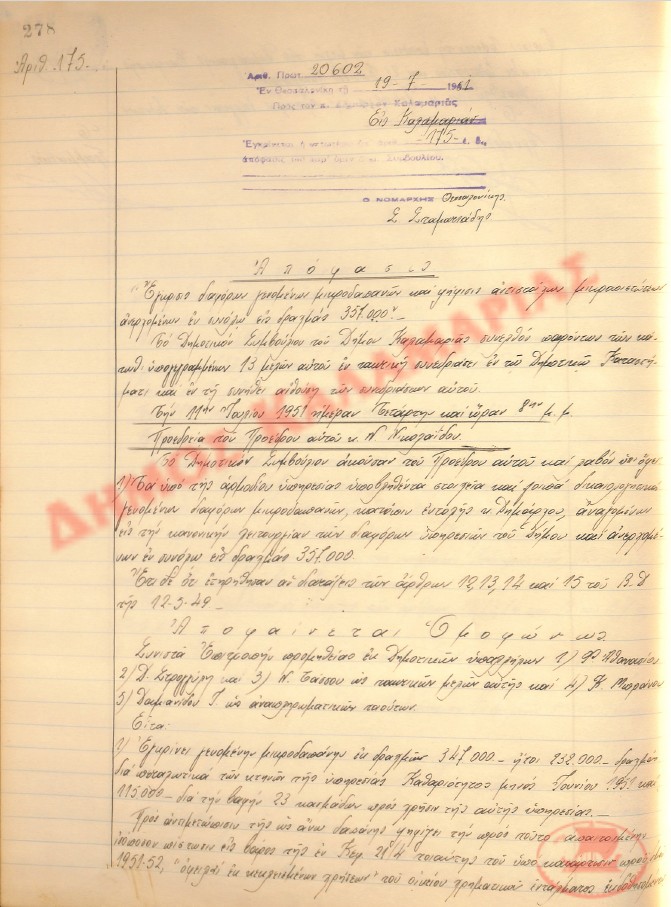 278
Ἀριθ. 175.
Αριθ. Πρωτ. 20602
Ἐν Θεσσαλονίκῃ τῇ 19-7 1951
Πρὸς τὸν κ. Δήμαρχον Καλαμαριᾶς
Εἰς Καλαμαριάν
175
ἀπόφασις Συμβουλίου.
Ο ΝΟΜΑΡΧΗΣ Θεσσαλονίκης
Σ. Σταματιάδης
ΔΗΜΟΣ ΚΑΛΑΜΑΡΙΑΣ
Ἀπόφασις
Ἔγκρισις διαφόρων γενομένων μικροδαπανῶν καὶ ψήφισις ἀντιστοίχων μικροπιστώσεων
ἀνερχομένων ἐν συνόλῳ εἰς δραχμὰς 357.000.-
Τὸ Δημοτικὸν Συμβούλιον τοῦ Δήμου Καλαμαριᾶς συνελθὸν παρόντων τῶν κά-
τωθι ὑπογεγραμμένων 13 μελῶν αὐτοῦ ἐν τακτικῇ συνεδριάσει ἐν τῷ Δημοτικῷ Καταστή-
ματι καὶ ἐν τῇ συνήθει αἰθούσῃ τῶν συνεδριάσεων αὐτοῦ.
Τὴν 11ην Ἰουλίου 1951 ἡμέραν Τετάρτην καὶ ὥραν 8ην μ.μ.
Προεδρεία τοῦ Προέδρου αὐτοῦ κ. Ν. Νικολαΐδου.
Τὸ Δημοτικὸν Συμβούλιον ἀκοῦσαν τοῦ Προέδρου αὐτοῦ καὶ λαβὸν ὑπ' ὄψει
1) Τὰ ὑπὸ τῆς ἁρμοδίου ὑπηρεσίας ὑποβληθέντα στοιχεῖα καὶ λοιπὰ δικαιολογητικὰ
γενομένων διαφόρων μικροδαπανῶν, κατόπιν ἐντολῆς κ. Δημάρχου, ἀναγομένων
εἰς τὴν κανονικὴν λειτουργίαν τῶν διαφόρων ὑπηρεσιῶν τοῦ Δήμου καὶ ἀνερχομέ-
νων ἐν συνόλῳ εἰς δραχμὰς 357.000.
Ἔτι δὲ ὅτι ἐτηρήθησαν αἱ διατάξεις τῶν ἄρθρων 12, 13, 14 καὶ 15 τοῦ Β.Δ
τῆς 12-5-49.-
Ἀποφαίνεται Ὁμοφώνως
Συνιστᾶ Ἐπιτροπὴν προμηθείας ἐκ Δημοτικῶν ὑπαλλήλων 1) Ἀθανασίου
2) Δ. Στρογγύλη καὶ 3) Ν. Τάσσου ὡς τακτικῶν μελῶν αὐτῆς καὶ 4)
5) Δαμιανίδου Γ. ὡς ἀναπληρωματικῶν τοιούτων.
Εἶτα:
Ἐγκρίνει γενομένην μικροδαπάνην ἐκ δραχμῶν 347.000 ἤτοι 232.000 δραχμῶν
διὰ τῶν κτηνῶν τῆς ὑπηρεσίας Καθαριότητος μηνὸς Ἰουνίου 1951 καὶ
115.000 διὰ τὴν βαφὴν 23 πρὸς χρῆσιν τῆς αὐτῆς ὑπηρεσίας.
Πρὸς ἀντιμετώπισιν τῆς ὡς ἄνω δαπάνης ψηφίζει τὴν πρὸς τοῦτο ἀπαιτουμένην
ἰσόποσον πίστωσιν εἰς βάρος τῆς ἐν Κεφ. τοιαύτης τοῦ ὑπὸ κατάρτισιν
1951-52, "ὀφειλαὶ ἐκ κεκλεισμένων χρήσεων" τοῦ οἰκείου χρηματικοῦ ἐντάλματος